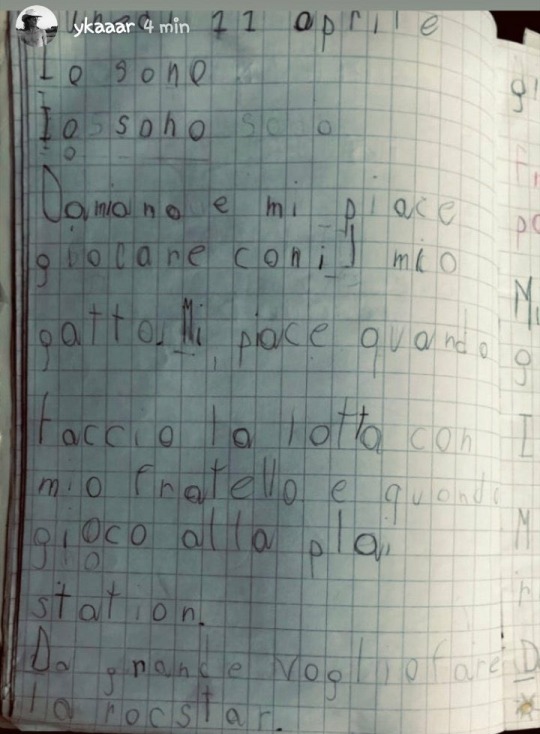 ykaaar 4 min
11 aprile
Io sono
Io sono sono
Damiano e mi piace
giocare con il mio
gatto. Mi piace quando
faccio la lotta con
mio fratello e quando
gioco alla plai
station.
Da grande voglio fare
la rocstar.